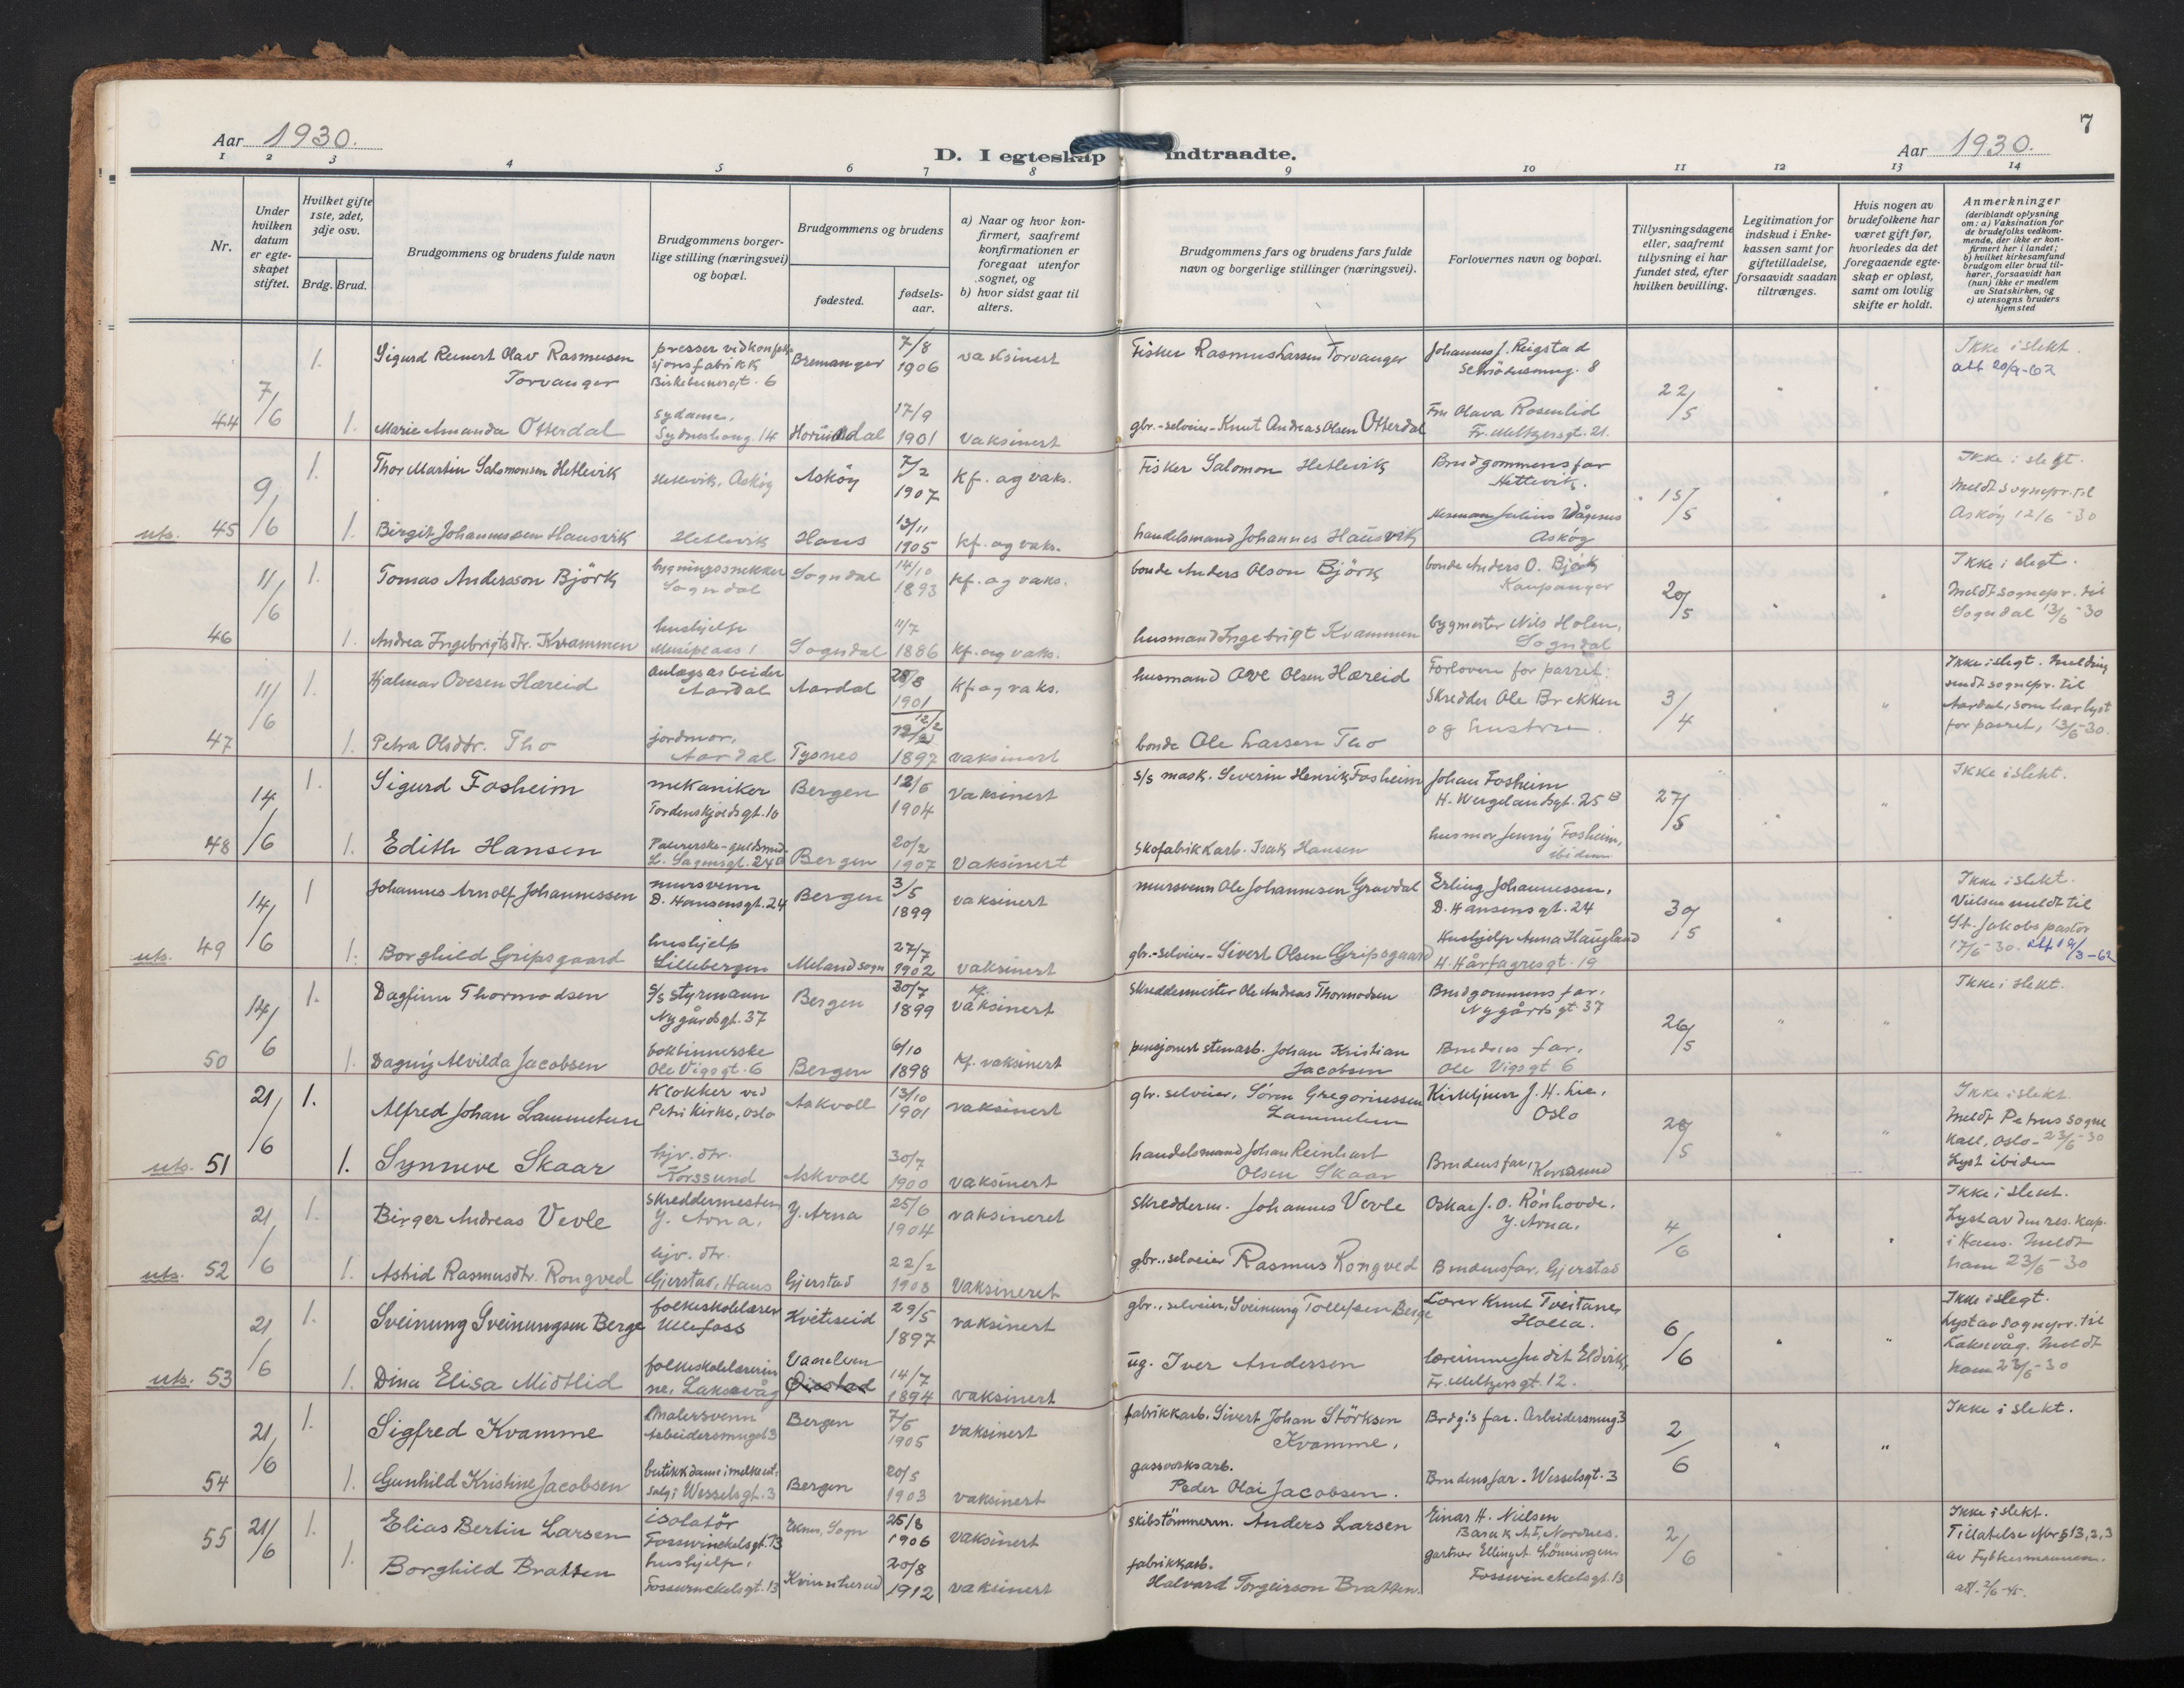 7
Aar 1930.
D. I egteskap indtraadte.
Aar 1930.
1 2 3 4 5 6 7 8 9 10 11 12 13 14
Nr.
Under hvilken datum er egteskapet stiftet.
Hvilket gifte 1ste, 2det, 3dje osv.
Brdg. Brud.
Brudgommens og brudens fulde navn
Brudgommens borgerlige stilling (næringsvei) og bopæl.
Brudgommens og brudens
fødested.
fødselsaar.
a) Naar og hvor konfirmert, saafremt konfirmationen er foregaat utenfor sognet, og
b) hvor sidst gaat til alters.
Brudgommens fars og brudens fars fulde navn og borgerlige stillinger (næringsvei).
Forlovernes navn og bopæl.
Tillysningsdagene eller, saafremt tillysning ei har fundet sted, efter hvilken bevilling.
Legitimation for indskud i Enkekassen samt for giftetilladelse, forsaavidt saadan tiltrænges.
Hvis nogen av brudefolkene har været gift før, hvorledes da det foregaaende egteskap er opløst, samt om lovlig skifte er holdt.
Anmerkninger
(deriblandt oplysning om: a) Vaksination for de brudefolks vedkommende, der ikke er konfirmert her i landet; b) hvilket kirkesamfund brudgom eller brud tilhører, forsaavidt han (hun) ikke er medlem av Statskirken, og c) utensogns bruders hjemsted
44 7/6 1. Sigurd Reinert Olav Rasmusen Torvanger presser ved konfeksjonsfabrikk Birkebeinersgt. 6 Bremanger 7/8 1906 vaksinert Fisker Rasmus Larsen Torvanger Johannes J. Reigstad 8 22/5 Ikke i slekt. att 20/9-62
1. Marie Amanda Otterdal sydame, Sydneshaug. 14 Hornindal 17/9 1901 vaksinert gbr.-selveier- Knut Andreas Olsen Otterdal Fru Olava Rosenlid Fr. Meltzersgt. 21.
uts. 45 9/6 1. Thor Martin Salomonsen Hetlevik Hetlevik, Askøy Askøy 7/2 1907 Kf. og vaks. Fisker Salomon Hetlevik Brudgommens far Hetlevik. 15/5 Ikke i slegt. Meldt sognepr. til Askøy 12/6-30
1. Birgit Johannessen Hausvik Hetlevik Haus 13/11 1905 kf. og vaks. handelsmand Johannes Hausvik Askøy
46 11/6 1. Tomas Andersson Björk bygningssnekker Sogndal Sogndal 14/10 1893 kf. og vaks. bonde Anders Olson Björk bonde Anders O. Björk Kaupanger 20/5 Ikke i slegt. Meldt sognepr. til Sogndal 13/6-30
1. Andrea Ingebrigtsdtr. Kvammen hushjelp 1 Sogndal 11/7 1886 Kf. og vaks. husmand Ingebrigt Kvammen bygmester Nils Holen, Sogndal
47 11/6 1. Hjalmar Ovesen Hæreid anlegsarbeider Aardal Aardal 28/8 1901 Kf. og vaks. husmand Ove Olsen Hæreid Forlovere for parret: Skredder Ole Brekken og hustru 3/4 Ikke i slegt. Melding sendt sognepr. til Aardal, som har lyst for parret, 13/6-30.
1. Petra Olsdtr. Tho jordmor, Aardal Tysnes 12/2 1897 vaksinert bonde Ole Larsen Tho
48 14/6 1. Sigurd Fosheim mekaniker Tordenskjoldsgt. 10 Bergen 12/6 1904 vaksinert s/s mask. Severin Henrik Fosheim Johan Fosheim H. Wergelandsgt. 25 B 27/5 Ikke i slekt.
1. Edith Hansen L. Sagensgt. 24 B Bergen 20/2 1907 Vaksinert Skofabrikkarb. Isak Hansen husmor Jenny Fosheim, ibidem
uts. 49 14/6 1 Johannes Arnolf Johannessen mursvenn D. Hansensgt. 24 Bergen 3/5 1899 vaksinert mursvenn Ole Johannesen Gravdal Erling Johannessen, D. Hansensgt. 24 30/5 Ikke i slekt. Vielsen meldt til St. Jakobs pastor 17/6-30. att 19/3-62
1. Borghild Gripsgaard hushjelp Lillebergen Meland sogn 27/7 1902 vaksinert gbr.-selveier- Sivert Olsen Gripsgaard Hushjelp Anna Haugland H. Hårfagresgt. 19
50 14/6 1. Dagfinn Thormodsen s/s styrmann Nygårdsgt. 37 Bergen 30/7 1899 kf. vaksinert Skreddermester Ole Andreas Thormodsen Brudgommens far. Nygårdsgt 37 26/5 Ikke i slekt.
1. Dagny Alvilda Jacobsen bokbinnerske Ole Vigsgt. 6 Bergen 6/10 1898 kf. vaksinert pensjonert stenarb. Johan Kristian Jacobsen Brudens far, Ole Vigsgt. 6
uts. 51 21/6 1. Alfred Johan Lammetun Klokker ved Petri Kirke, Oslo Askvoll 13/10 1901 vaksinert gbr. selveier, Sørn Gregoriussen Lammetun Kirketjener J. H. Lie, Oslo 28/5 Ikke i slekt. Meldt Petrus sogne kall, Oslo - 23/6-30 Lyst ibiden
1. Synneve Skaar hjv. dtr. Korssund Askvoll 30/7 1900 vaksinert handelsmand Johan Reinhart Olsen Skaar Brudens far, Korssund
uts. 52 21/6 1. Birger Andreas Vevle Skreddermester Y. Arna, Y. Arna 25/6 1904 vaksineret skredderm. Johannes Vevle Oskar J. O. Rønhovde. Y. Arna. 4/6 Ikke i slekt. Lyst av den res. kap. i Haus. Meldt ham 23/6-30
1. Astrid Rasmusdtr. Rongved hjv. dtr. Gjerstad, Haus Gjerstad 22/2 1903 vaksineret gbr., selveier Rasmus Rongved Brudens far, Gjerstad
uts. 53 21/6 1. Sveinung Sveinungsen Berge folkeskolelærer Ulefoss Kviteseid 29/5 1897 vaksinert gbr., selveier, Sveinung Tollefsen Berge Lærer Knut Tveitane, Holla. 6/6 Ikke i slegt. Lyst av sognepr. til Laksevåg. Meldt ham 23/6-30
1. Dina Elisa Midtlid folkeskolelærerinne, Laksevåg 14/7 1894 vaksinert ug. Iver Andersen lærerinne Judit Eldvik, Fr. Meltzersgt. 12.
54 21/6 1. Sigfred Kvamme Malersvenn Arbeidersmuget 3 Bergen 7/6 1905 vaksinert fabrikkarb. Sivert Johan Störksen Kvamme. Brdg's far. Arbeidersmug 3 2/6 Ikke i slekt.
1. Gunhild Kristine Jacobsen butikkdame i melkeutsalg i Wesselsgt. 3 Bergen 20/5 1903 vaksinert gassverksarb. Peder Olai Jacobsen. Brudens far. Wesselsgt. 3
55 21/6 1. Elias Bertin Larsen isolatør Fosswinckelsgt. 13 Sogn 25/8 1906 vaksinert skibstömmerm. Anders Larsen Einar H. Nielsen Barak Nordnes. 2/6 Ikke i slekt. Tillatelse efter § 13, 2, 3 av Fylkesmannen. att. 2/6-45.
1. Borghild Bratten hushjelp, Fosswinckelsgt. 13 Kvinnherad 20/8 1912 vaksinert fabrikkarb. Halvard Torgeirson Bratten. gartner Elling Lönningen Fosswinckelsgt. 13